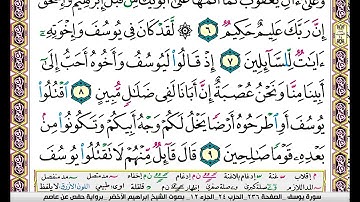 وَعَلَىٰٓ ءَالِ يَعْقُوبَ كَمَآ أَتَمَّهَا عَلَىٰٓ أَبَوَيْكَ مِن قَبْلُ إِبْرَٰهِيمَ وَإِسْحَٰقَ
إِنَّ رَبَّكَ عَلِيمٌ حَكِيمٌ ٦ لَّقَدْ كَانَ فِى يُوسُفَ وَإِخْوَتِهِۦٓ
ءَايَٰتٌ لِّلسَّآئِلِينَ ٧ إِذْ قَالُوا۟ لَيُوسُفُ وَأَخُوهُ أَحَبُّ إِلَىٰٓ
أَبِينَا مِنَّا وَنَحْنُ عُصْبَةٌ إِنَّ أَبَانَا لَفِى ضَلَٰلٍ مُّبِينٍ ٨ ٱقْتُلُوا۟
يُوسُفَ أَوِ ٱطْرَحُوهُ أَرْضًا يَخْلُ لَكُمْ وَجْهُ أَبِيكُمْ وَتَكُونُوا۟ مِنۢ
بَعْدِهِۦ قَوْمًا صَٰلِحِينَ ٩ قَالَ قَآئِلٌ مِّنْهُمْ لَا تَقْتُلُوا۟ يُوسُفَ
سورة يوسف الصفحة ٢٣٦ الحزب ٢٤ الجزء ١٢ بصوت الشيخ إبراهيم الأخضر برواية حفص عن عاصم